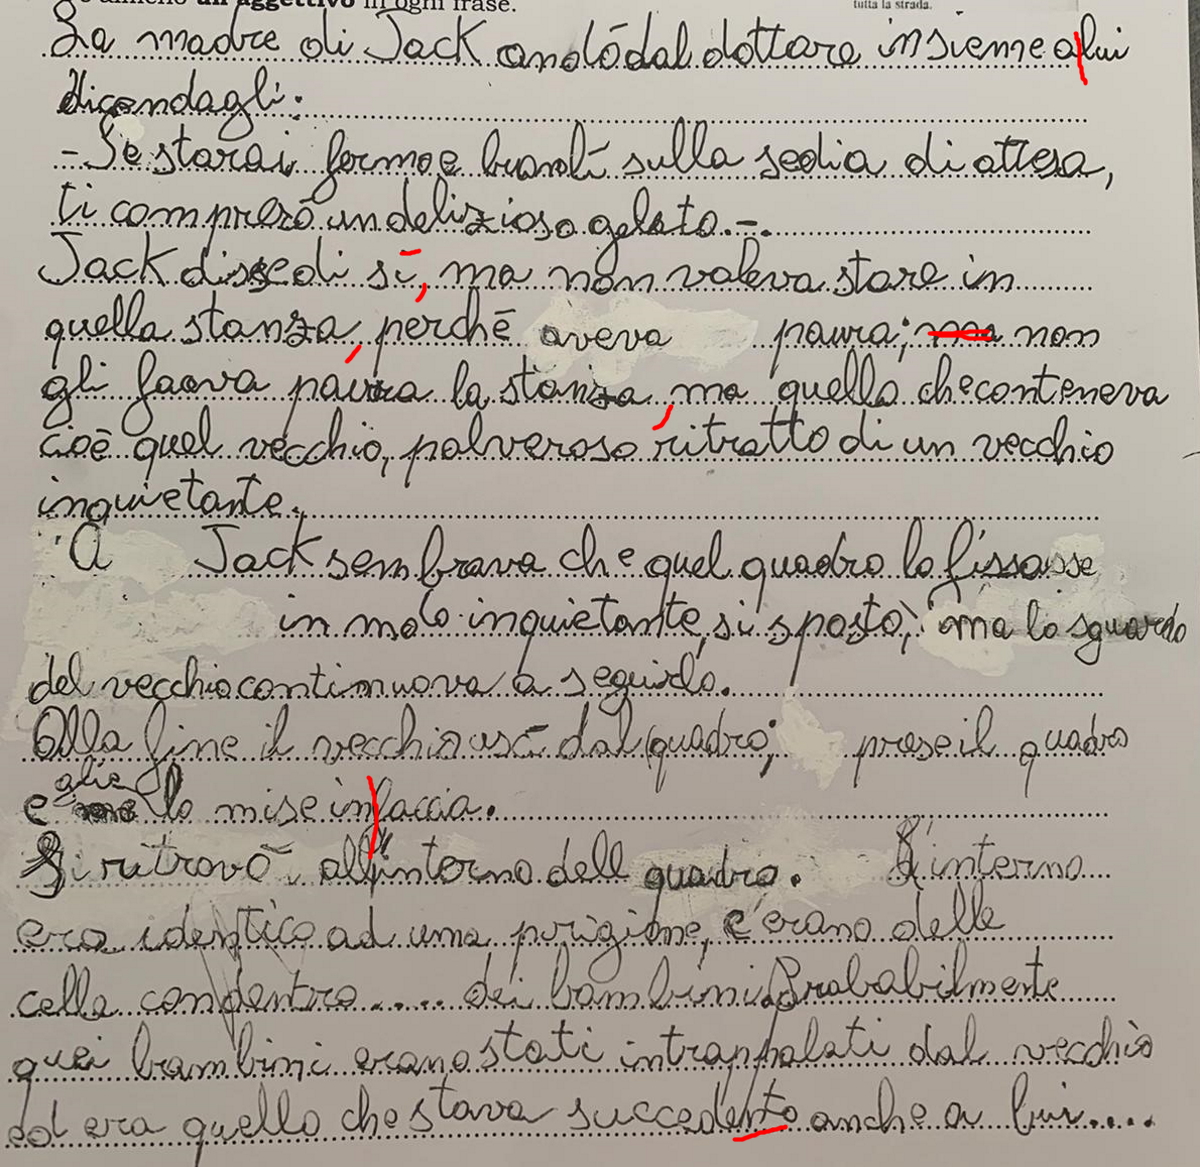 un aggettivo in ogni frase.
tutta la strada.
La madre di Jack andò dal dottore insieme a lui
dicendogli:
-Se starai fermo e buono lì sulla sedia di attesa,
ti comprerò un delizioso gelato.-.
Jack disse di sì, ma non voleva stare in
quella stanza, perché aveva paura; ma non
gli faceva paura la stanza, ma quello che conteneva
cioè quel vecchio, polveroso ritratto di un vecchio
inquietante.
A Jack sembrava che quel quadro lo fissasse
in modo inquietante, si spostò, ma lo sguardo
del vecchio continuava a seguirlo.
Alla fine il vecchio uscì dal quadro; prese il quadro
e glielo mise in faccia.
Si ritrovò all'intorno dell quadro. L'interno
era identico ad una prigione, c'erano delle
celle con dentro..... dei bambini. Probabilmente
quei bambini erano stati intrappolati dal vecchio
ed era quello che stava succedento anche a lui....